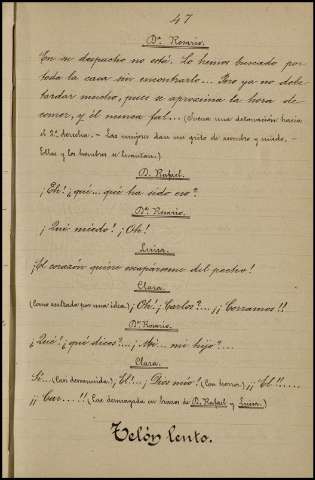 47
Dª. Rosario.
En su despacho no está. Lo hemos buscado por
toda la casa sin encontrarlo... Pero ya no debe
tardar mucho, pues se aproxima la hora de
comer, y él nunca fal... (Suena una detonación hacia
el 2º derecha. - Las mujeres dan un grito de asombro y miedo. -
Ellas y los hombres se levantan.)
D. Rafael.
¡Eh! ¿qué... qué ha sido eso?
Dª. Rosario.
¡Qué miedo! ¡Oh!
Luisa.
¡El corazón quiere escapárseme del pecho!
Clara.
(Como asaltada por una idea.) ¡Oh! ¿Carlos?.... ¡¡Corramos!!
Dª. Rosario.
¿Qué! ¿qué dices?... ¡Mi... mi hijo?....
Clara.
Sí... (Casi desvanecida.) ¡El!... ¡Dios mío! (Con horror.) ¡¡El!!....
¡¡Car....!! (Cae desmayada en brazos de D. Rafael y Luisa.)
Telón lento.